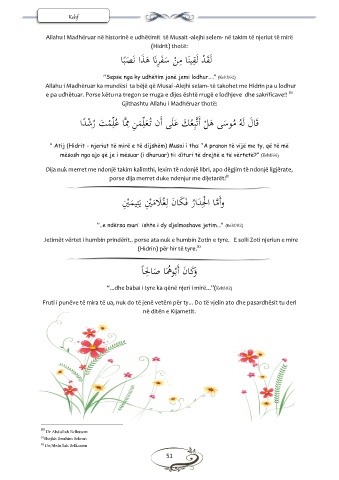 Kehf
Allahu i Madhëruar në historinë e udhëtimit të Musait -alejhi selem- në takim të njeriut të mirë
(Hidrit) thotë:
لَقَدْ لَقِينَا مِنْ سَفَرِنَا هَذَا نَصَبًا
"Sepse nga ky udhëtim jonë jemi lodhur..." (Kehf:62)
Allahu i Madhëruar ka mundësi ta bëjë që Musai -Alejhi selam- të takohet me Hidrin pa u lodhur
e pa udhëtuar. Porse këtu na tregon se rruga e dijes është rrugë e lodhjeve dhe sakrificave!
Gjithashtu Allahu i Madhëruar thotë:
قَالَ لَهُ مُوسَى هَلْ أَتَّبِعُكَ عَلَى أَن تُعَلِّمَنِ مِمَّا عُلِّمْتَ رُشْدًا
" Atij (Hidrit - njeriut të mirë e të dijshëm) Musai i tha: "A pranon të vijë me ty, që të më
mësosh nga ajo që je i mësuar (i dhuruar) në dituri të drejtë e të vërtetë?" (Kehf:66)
Dija nuk merret me ndonjë takim kalimthi, lexim të ndonjë libri, apo dëgjim të ndonjë ligjërate,
porse dija merret duke ndenjur me dijetarët!
وَأَمَّا الْجِدَارُ فَكَانَ لِغُلَامَيْنِ يَتِيمَيْنِ
"..e ndërsa muri ishte i dy djelmoshave jetim..." (Kehf:82)
Jetimët vërtet i humbin prindërit.. porse ata nuk e humbin Zotin e tyre. E solli Zoti njeriun e mirë
(Hidrin) për hir të tyre.
وَكَانَ أَبُوهُمَا صَالِحًا
"...dhe babai i tyre ka qënë njeri i mirë..."(Kehf:82)
Fruti i punëve të mira të ua, nuk do të jenë vetëm për ty... Do të vjelin ato dhe pasardhësit tu deri
në ditën e Kijametit.
Dr Abdullah Belkasem
Shejkh Ibrahim Sekran
Dr.Abdullah Belkasem
51